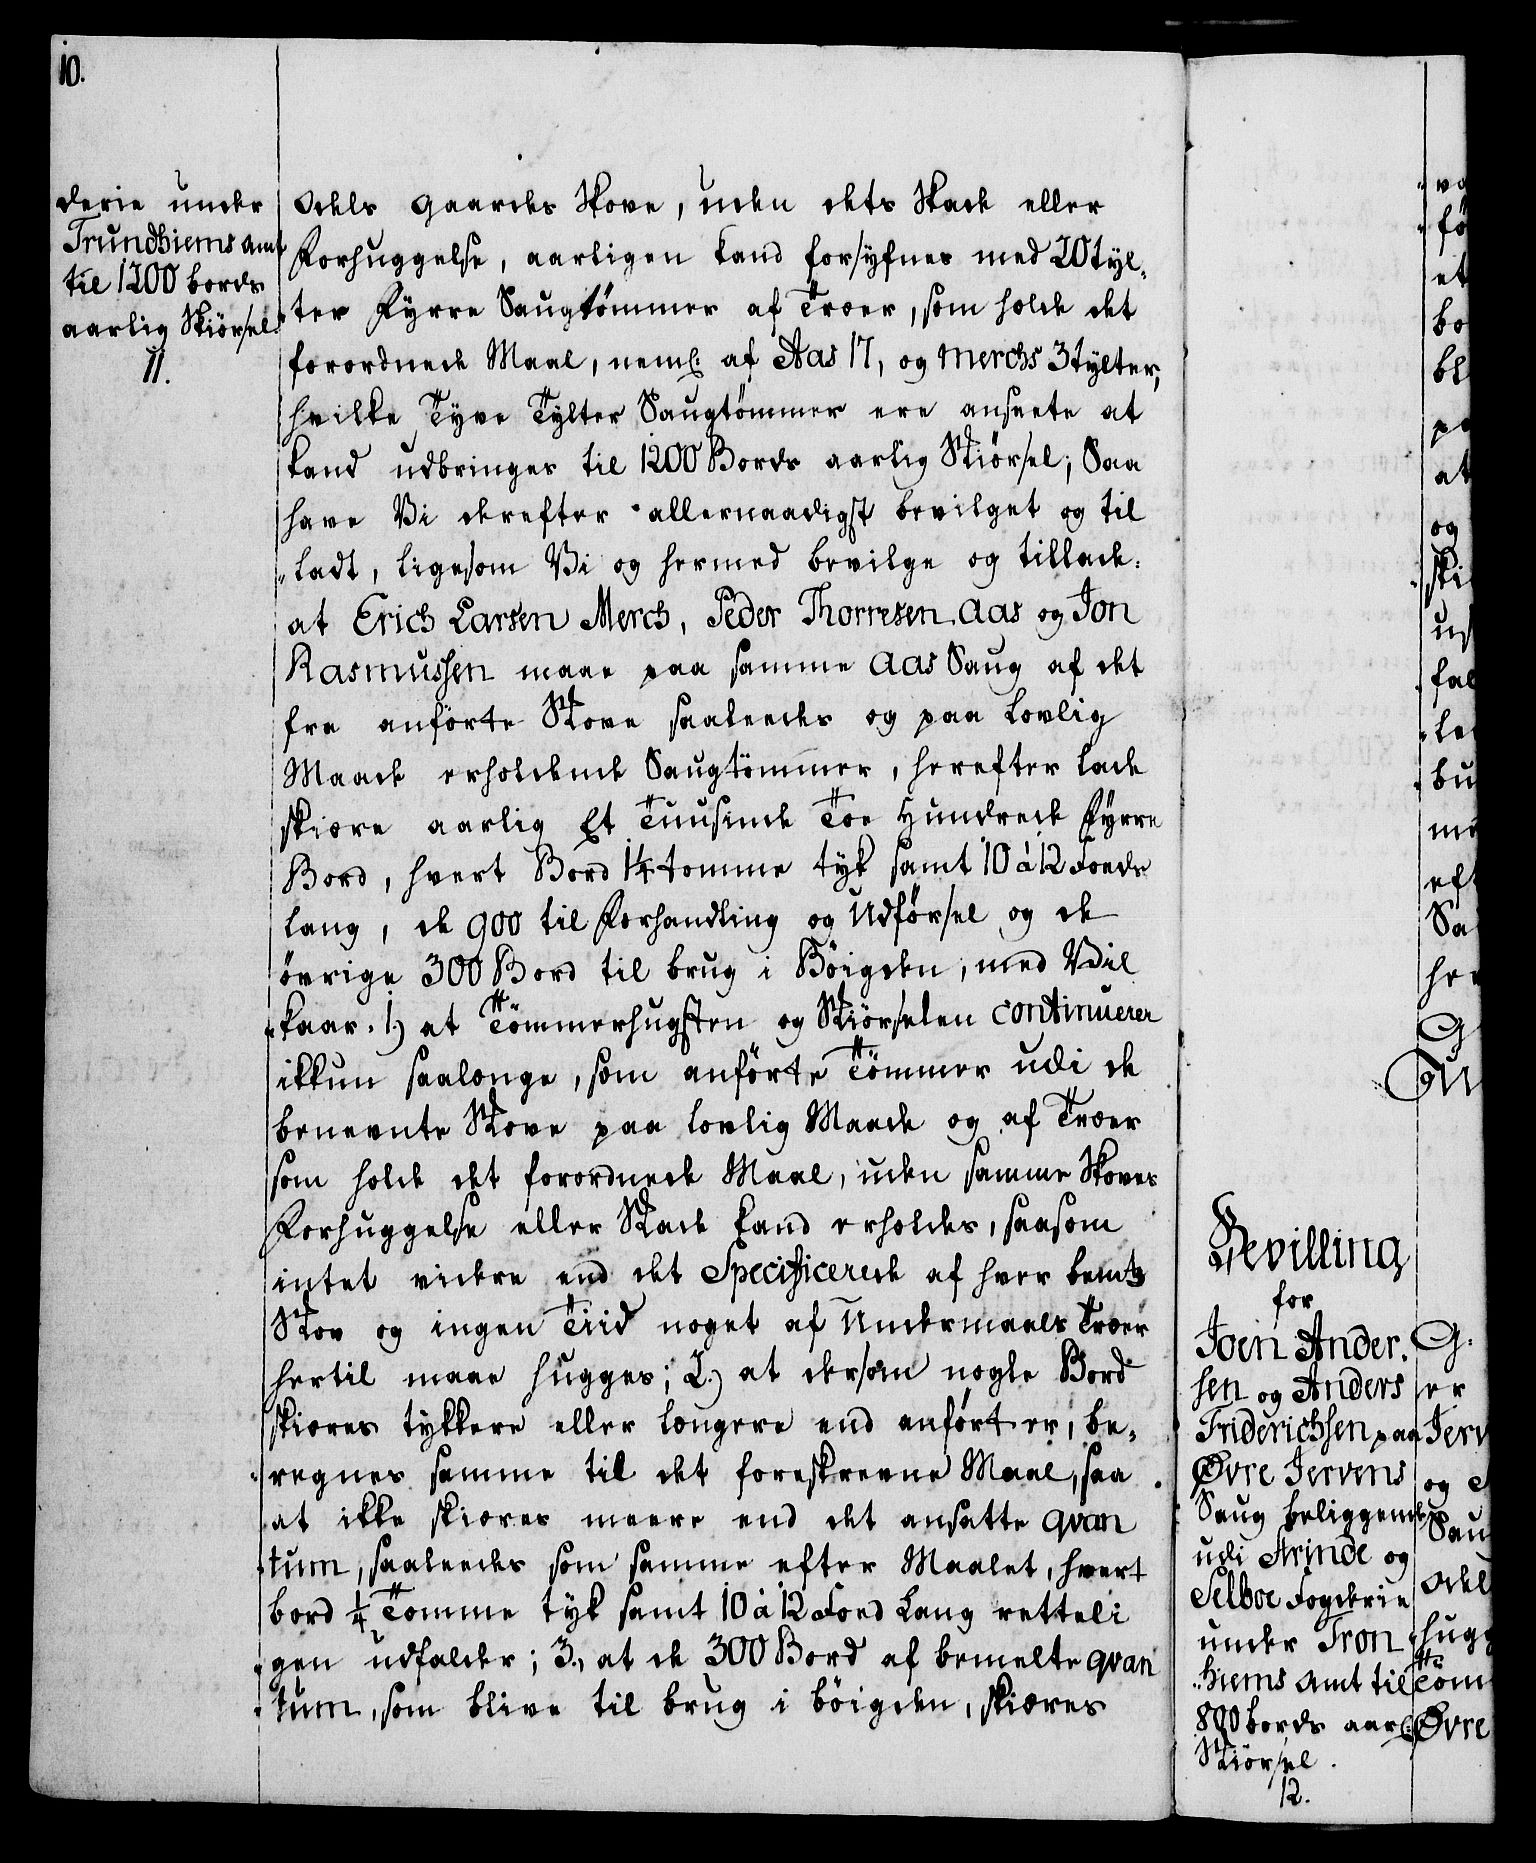 10.
derie under
Trundhiems Amt
til 1200 bords
aarlig Skiörsel.
11.
Odels Gaardes Skove, uden dets Skade eller
Forhuggelse, aarligen kand forsyfnes med 20 tyl-
ter Fyrre Saugtömmer af Træer, som holde det
forordnede Maal, neml: af Aas 17, og Merchs 3 tylter,
hvilke Tyve Tylter Saugtömmer ere anseete at
kand udbringes til 1200 Bords aarlig Skiörsel; Saa
have Vi derefter allernaadigst bevilget og til
ladt, ligesom Vi og hermed bevilge og tillade:
at Erich Larsen Merch, Peder Thorresen Aas og Jon
Rasmussen maae paa samme Aas Saug af det
fra anförte Skove saaleedes og paa Lovlig
Maade erholdende Saugtömmer, herefter lade
skiære aarlig Et Tuusinde Toe Hundrede Fyrre
Bord, hvert Bord 1 1/4 tomme tyk samt 10 à 12 Foeds
lang, de 900 til Forhandling og Udförsel og de
övrige 300 Bord til brug i Böigden, med Vil
kaar. 1.) at Tömmerhugsten og Skiörselen continuerer
ikkun saalænge, som anförte Tömmer udi de
benævnte Skove paa lovlig Maade og af Træer
som holde det forordnede Maal, uden samme Skoves
Forhuggelse eller Skade kand erholdes, saasom
intet videre end det Specificerede af hver bemte
Skov og ingen Tiid noget af Undermaals Træer
hertil maae hugges; 2.) at dersom nogle Bord
skiæres tykkere eller længere end anfört er, be-
regnes samme til det foreskrevne Maal, saa
at ikke skiæres meere end det ansatte qvan
tum, saaleedes som samme efter Maalet, hvert
bord 1/4 Tomme tyk samt 10 à 12 Foed Lang retteli
gen udfalder; 3., at de 300 Bord af bemelte qvan
tum, som blive til brug i böigden, skiæres
Bevilling
for
Joen Ander-
sen og Anders
Friderichsen paa
Øvre Jervens
Saug beliggende
udi Strinde og
Selboe Fogderie
under Tron
hiems Amt til
800 bords aarl:
Skiörsel.
12.